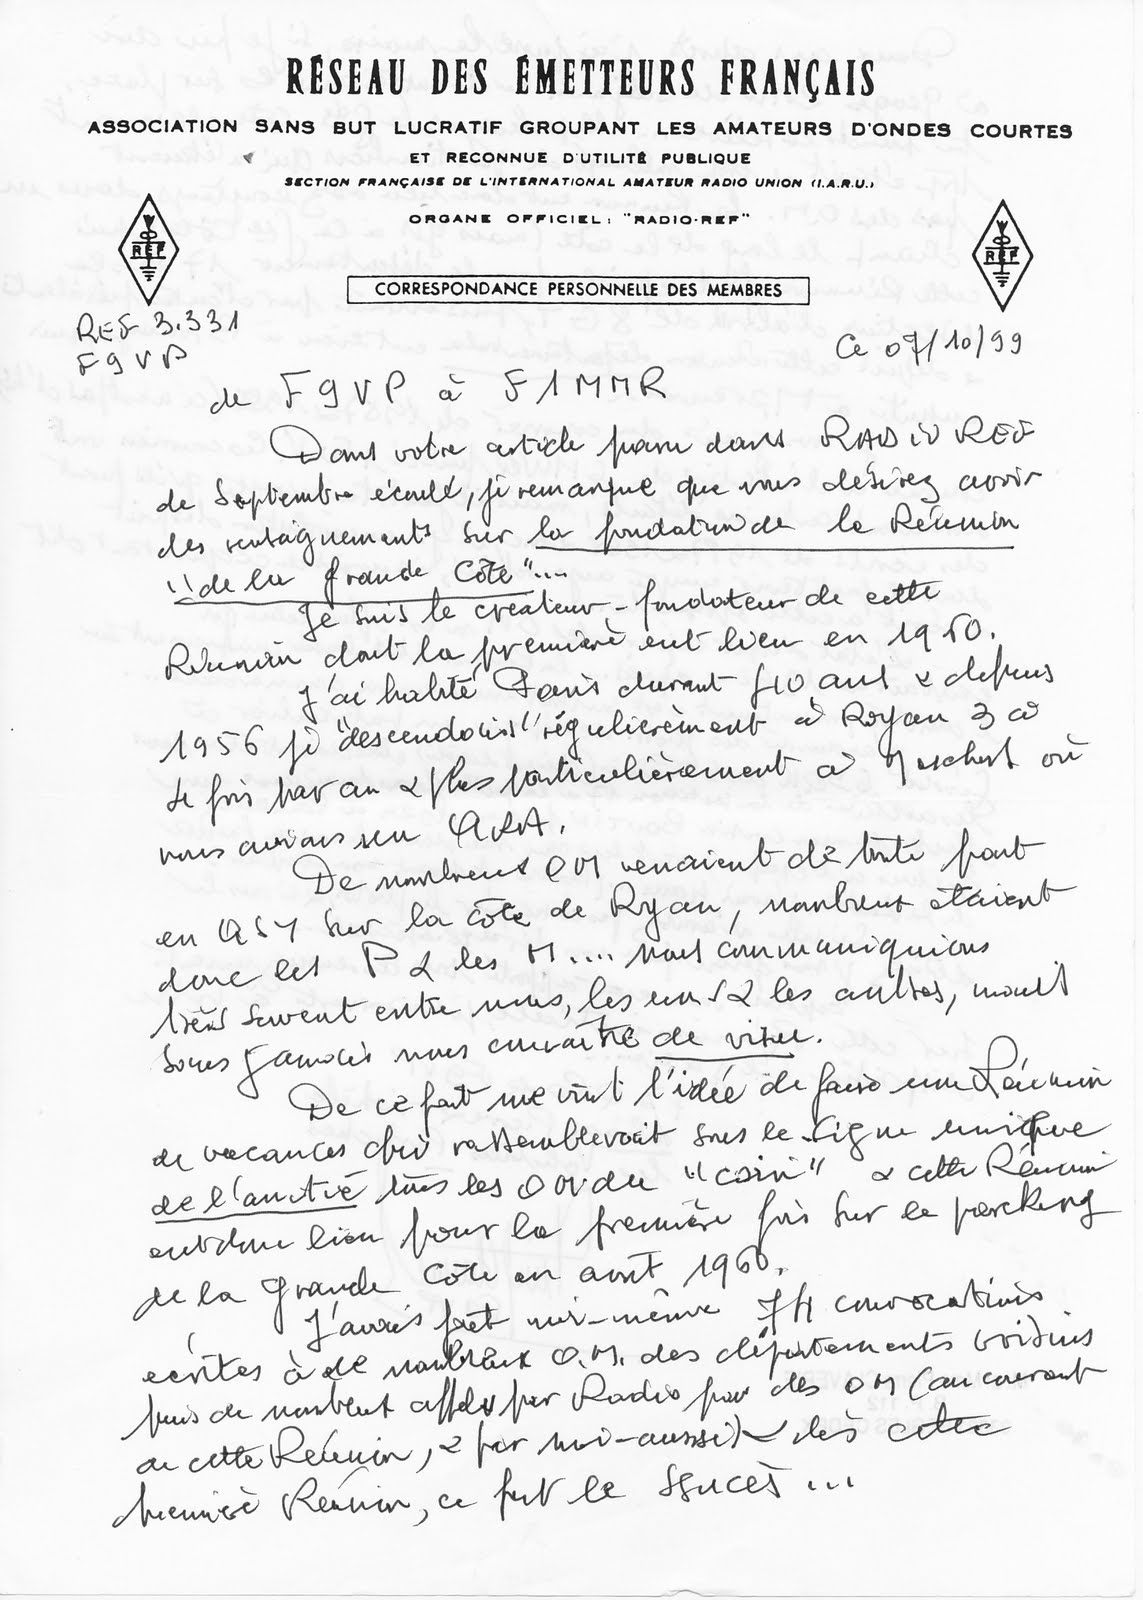 RÉSEAU DES ÉMETTEURS FRANÇAIS
ASSOCIATION SANS BUT LUCRATIF GROUPANT LES AMATEURS D'ONDES COURTES
ET RECONNUE D'UTILITÉ PUBLIQUE
SECTION FRANÇAISE DE L'INTERNATIONAL AMATEUR RADIO UNION (I.A.R.U.)
ORGANE OFFICIEL: "RADIO-REF"
REF
REF
CORRESPONDANCE PERSONNELLE DES MEMBRES
REF 3.331
F9VP
Ce 07/10/99
de F9VP à F1MMR
Dans votre article paru dans RADIO REF
de Septembre écoulé, je remarque que vous désirez avoir
des renseignements sur la fondation de la Réunion
"de la Grande Côte"...
Je suis le créateur-fondateur de cette
Réunion dont la première eut lieu en 1960.
J'ai habité Paris durant 40 ans & depuis
1956 je "descendais" régulièrement à Royan 3 à
4 fois par an & plus particulièrement à Meschers où
nous avions un QRA.
De nombreux OM venaient de toute part
en QSY sur la côte de Royan, nombreux étaient
donc les P & les M.... nous communiquions
très souvent entre nous, les uns & les autres, mais
sans jamais nous connaître de visu.
De ce fait me vint l'idée de faire une Réunion
de vacances qui rassemblerait sous le signe unique
de l'amitié tous les OM du "coin" & cette Réunion
eut donc lieu pour la première fois sur le parking
de la Grande Côte en août 1960.
J'avais fait moi-même 74 convocations
écrites à de nombreux O.M. des départements voisins
puis de nombreux appels par Radio par des OM (au courant
de cette Réunion, & par moi-aussi) & dès cette
première Réunion, ce fut le succès...